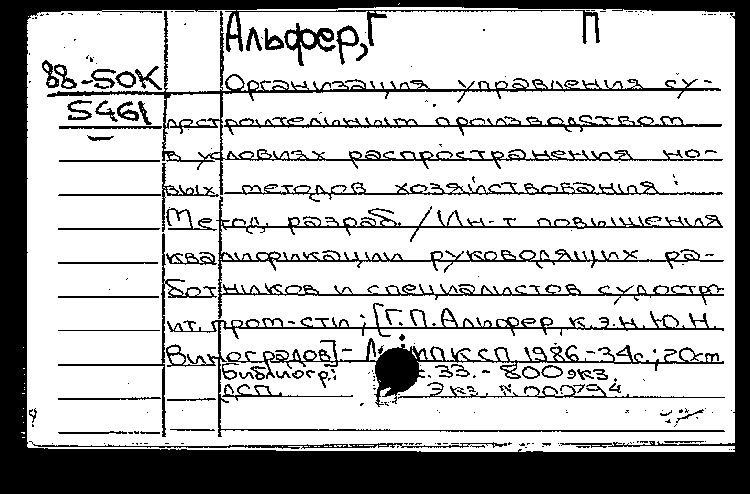 Альфер, Г П
88-50К
5461
Организация управления су-
достроительным производством
в условиях распространения но-
вых методов хозяйствования :
Метод. разраб. / Ин-т повышения
квалификации руководящих ра-
ботников и специалистов судостро-
ит. пром-сти ; [Г.П. Альфер, к.э.н. Ю.Н.
Виноградов] - Л.: ИПК СП, 1986. - 34с.; 20см
Библиогр.: с. 33. - 800 экз.
ДСП. Экз. N 000794.